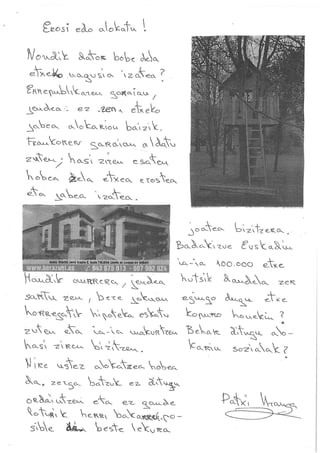 Erosi edo alokatu!
Nondik dator bobe dela
etxeko nagusia izatea?
Errepublikaren garaian,
jendea ez zen etxeko
jabea alokairou baizik.
Frankoren garaian aldatu
zuten, hasi ziren esaten
hobea zela etxea erostea
eta jabea izatea.
www.berazubi.es 943 675 013 - 607 992 024
Handik aurrera, jendea
sartu zen, bere jokoan
horregatik hipoteka eskatu
zuten eta ia-ia makurtzen
hasi ziren bizitzen.
Nire ustez alokatzea hobea
da, zerga batzuk ez ditugu
ordaintzen eta ez gaude
loturik herri bakarrei, po-
sible beste lekura
joatea bizitzera.
Badakizue Euskadin
ia-ia 100.000 etxe
hutsik daudela zer
egingo dugu etxe
kopuru honekin?
Behar ditugu alo-
kairu sozialak?
Patxi